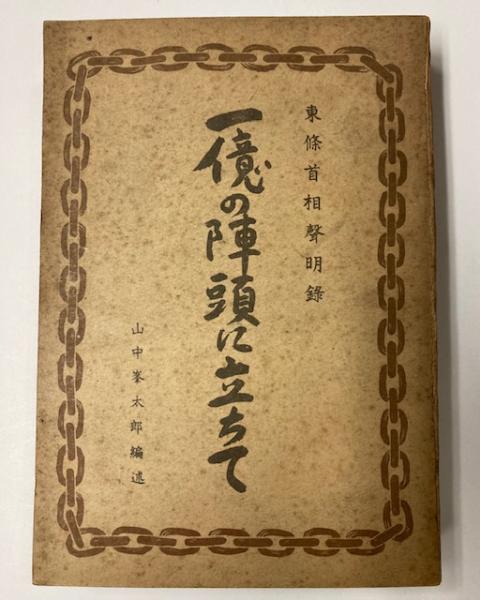 東條首相聲明錄
一億の陣頭に立ちて
山中峯太郎編述